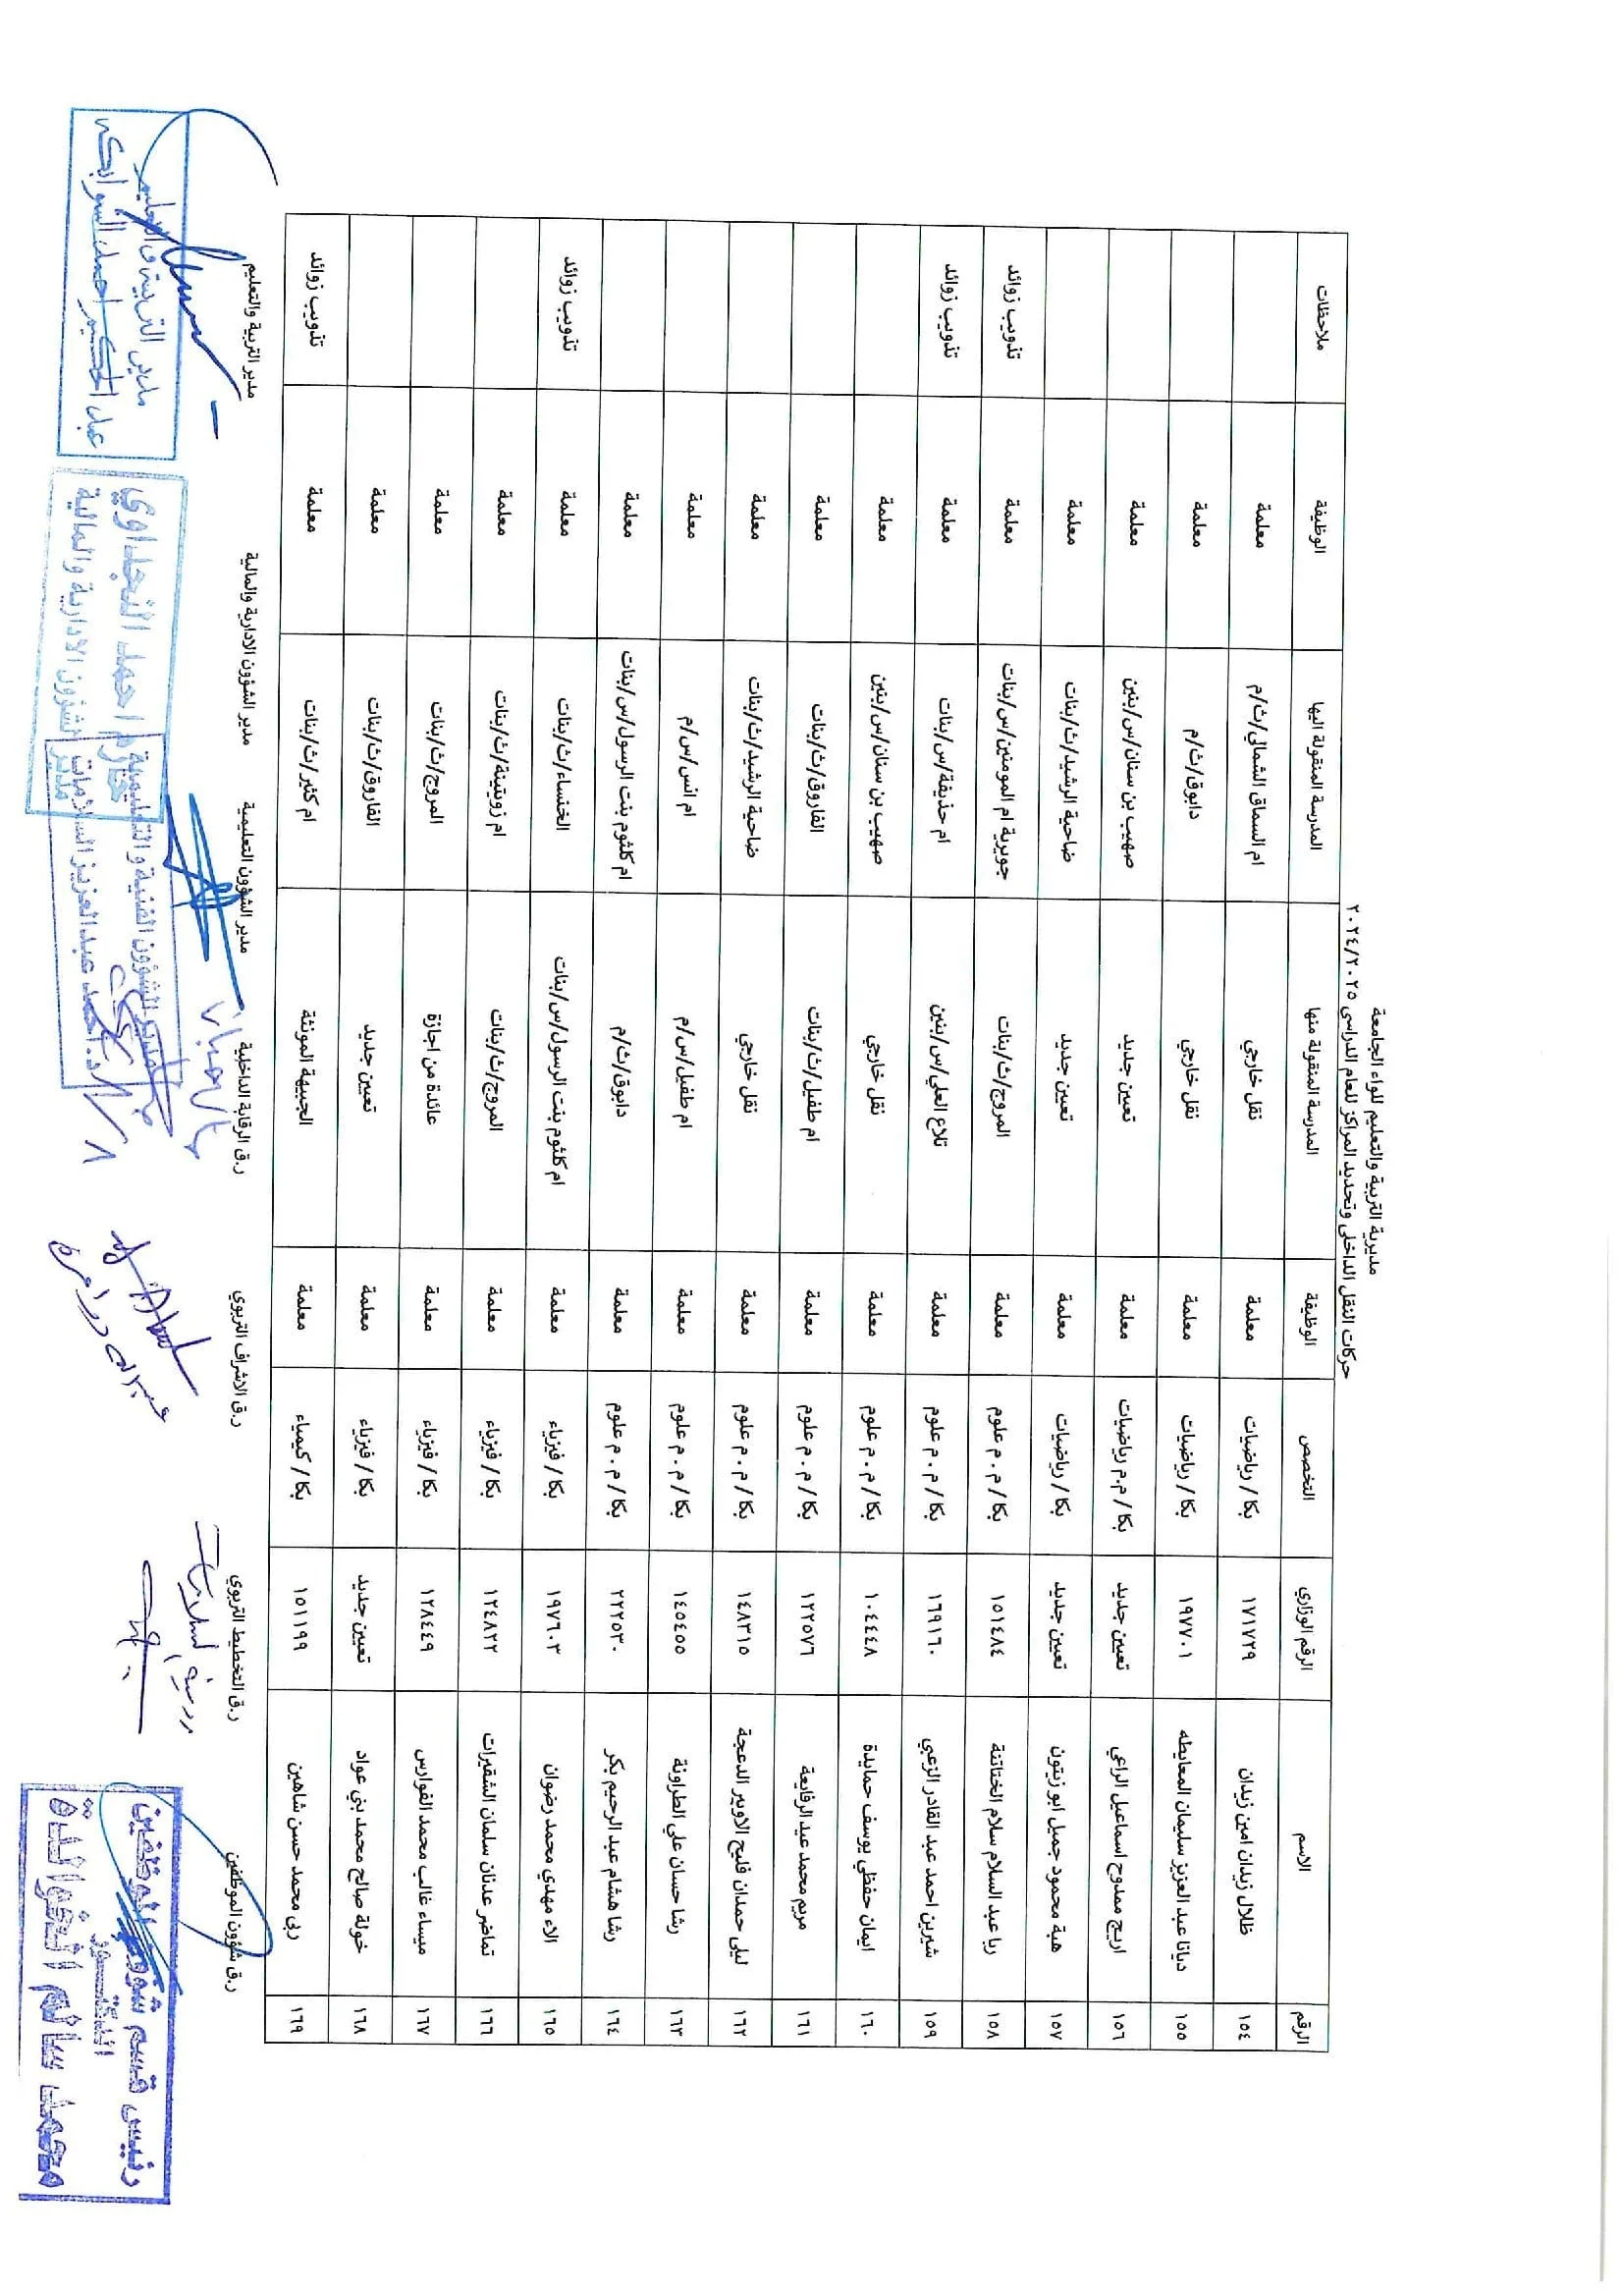 مديرية التربية والتعليم للواء الجامعة
حركات النقل الداخلي وتحديد المراكز للعام الدراسي ٢٠٢٤/٢٠٢٥
الرقم الاسم الرقم الوزاري التخصص الوظيفة المدرسة المنقولة منها المدرسة المنقولة اليها الوظيفة ملاحظات
١٥٤ ظلال زيدان امين زيدان ١٧١٧٢٩ بكا / رياضيات معلمة نقل خارجي ام السماق الشمالي/ث/م معلمة
١٥٥ ديانا عبد العزيز سليمان المعايطه ١٩٧٧٠١ بكا / رياضيات معلمة نقل خارجي دابوق/ث/م معلمة
١٥٦ اريج ممدوح اسماعيل الراعي تعيين جديد بكا / م.م رياضيات معلمة تعيين جديد صهيب بن سنان/س/بنين معلمة
١٥٧ هبة محمود جميل ابو زيتون تعيين جديد بكا / رياضيات معلمة تعيين جديد ضاحية الرشيد/ث/بنات معلمة
١٥٨ ربا عبد السلام سلام الختاتنة ١٥١٤٨٤ بكا / م . م علوم معلمة المروج/ث/بنات جويرية ام المومنين/س/بنات معلمة تذويب زوائد
١٥٩ شيرين احمد عبد القادر الزعبي ١٦٩١٦٠ بكا / م . م علوم معلمة تلاع العلي/س/بنين ام حذيفة/س/بنات معلمة تذويب زوائد
١٦٠ ايمان حفظي يوسف حمايدة ١٠٤٤٤٨ بكا / م . م علوم معلمة نقل خارجي صهيب بن سنان/س/بنين معلمة
١٦١ مريم محمد عيد الرفايعة ١٢٢٥٧٦ بكا / م . م علوم معلمة ام طفيل/ث/بنات الفاروق/ث/بنات معلمة
١٦٢ ليلى حمدان فليح الاويير الدعجة ١٤٨٣١٥ بكا / م . م علوم معلمة نقل خارجي ضاحية الرشيد/ث/بنات معلمة
١٦٣ رشا حسان علي الطراونة ١٤٥٤٥٥ بكا / م . م علوم معلمة ام طفيل/س/م ام انس/س/م معلمة
١٦٤ رشا هشام عبد الرحيم بكر ٢٢٢٥٣٠ بكا / م . م علوم معلمة دابوق/ث/م ام كلثوم بنت الرسول/س/بنات معلمة
١٦٥ الاء مهدي محمد رضوان ١٩٧٦٠٣ بكا / فيزياء معلمة ام كلثوم بنت الرسول/س/بنات الخنساء/ث/بنات معلمة تذويب زوائد
١٦٦ تماضر عدنان سلمان الشقيرات ١٢٤٨٢٢ بكا / فيزياء معلمة المروج/ث/بنات ام زويتينة/ث/بنات معلمة
١٦٧ ميساء غالب محمد الفوارس ١٢٨٤٤٩ بكا / فيزياء معلمة عائدة من اجازة المروج/ث/بنات معلمة
١٦٨ خولة صالح محمد بني عواد تعيين جديد بكا / فيزياء معلمة تعيين جديد الفاروق/ث/بنات معلمة
١٦٩ ربى محمد حسن شاهين ١٥١١٩٩ بكا / كيمياء معلمة الجبيهة المونثة ام كثير/ث/بنات معلمة تذويب زوائد
ر.ق شؤون الموظفين ر.ق التخطيط التربوي ر.ق الاشراف التربوي ر.ق الرقابة الداخلية مدير الشؤون التعليمية مدير الشؤون الادارية والمالية مدير التربية والتعليم
رئيس قسم شؤون الموظفين
الدكتور
محمد سالم الخوالدة
مدير الشؤون الفنية والتعليمية
د. احمد عبد العزيز السلامات
حازم احمد النجداوي
مدير الشؤون الادارية والمالية
مدير التربية والتعليم
عبد الحكيم احمد الشوابكه